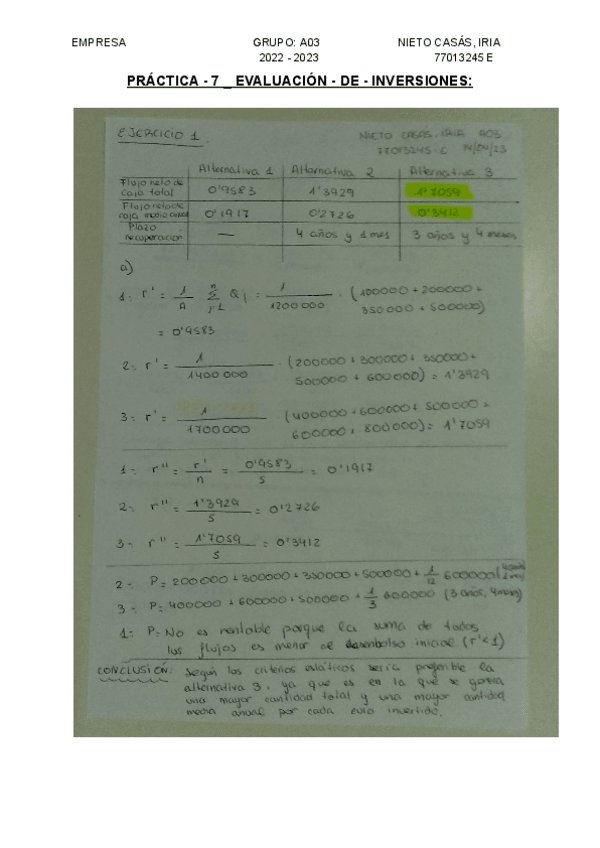 EMPRESA GRUPO: A03 NIETO CASÁS, IRIA
2022 - 2023 77013245 E
PRÁCTICA - 7 _ EVALUACIÓN - DE - INVERSIONES:
EJERCICIO 1. NIETO CASÁS, IRIA A03
77013245 E 14/04/23
Alternativa 1 Alternativa 2 Alternativa 3
Flujo neto de caja total 0'9583 1'3929 1'7059
Flujo neto de caja medio anual 0'1917 0'2726 0'3412
Plazo recuperación — 4 años y 1 mes 3 años y 4 meses
a)
1: r' = 1/A Σ(n, j=1) Qj = 1/1200000 · (100000 + 200000 +
350000 + 500000)
= 0'9583
2: r' = 1/1400000 · (200000 + 300000 + 350000 +
500000 + 600000) = 1'3929
3: r' = 1/1700000 (400000 + 600000 + 500000 +
600000 + 800000) = 1'7059
1: r'' = r'/n = 0'9583/5 = 0'1917
2: r'' = 1'3929/5 = 0'2726
3: r'' = 1'7059/5 = 0'3412
2: P = 200000 + 300000 + 350000 + 500000 + 1/12 600000 (4 años, 1 mes)
3: P = 400000 + 600000 + 500000 + 1/3 600000 (3 años, 4 meses)
1: P = No es rentable porque la suma de todos
los flujos es menor al desembolso inicial (r' < 1)
CONCLUSIÓN: Según los criterios estáticos sería preferible la
alternativa 3, ya que es en la que se genera
una mayor cantidad total y una mayor cantidad
media anual por cada euro invertido.